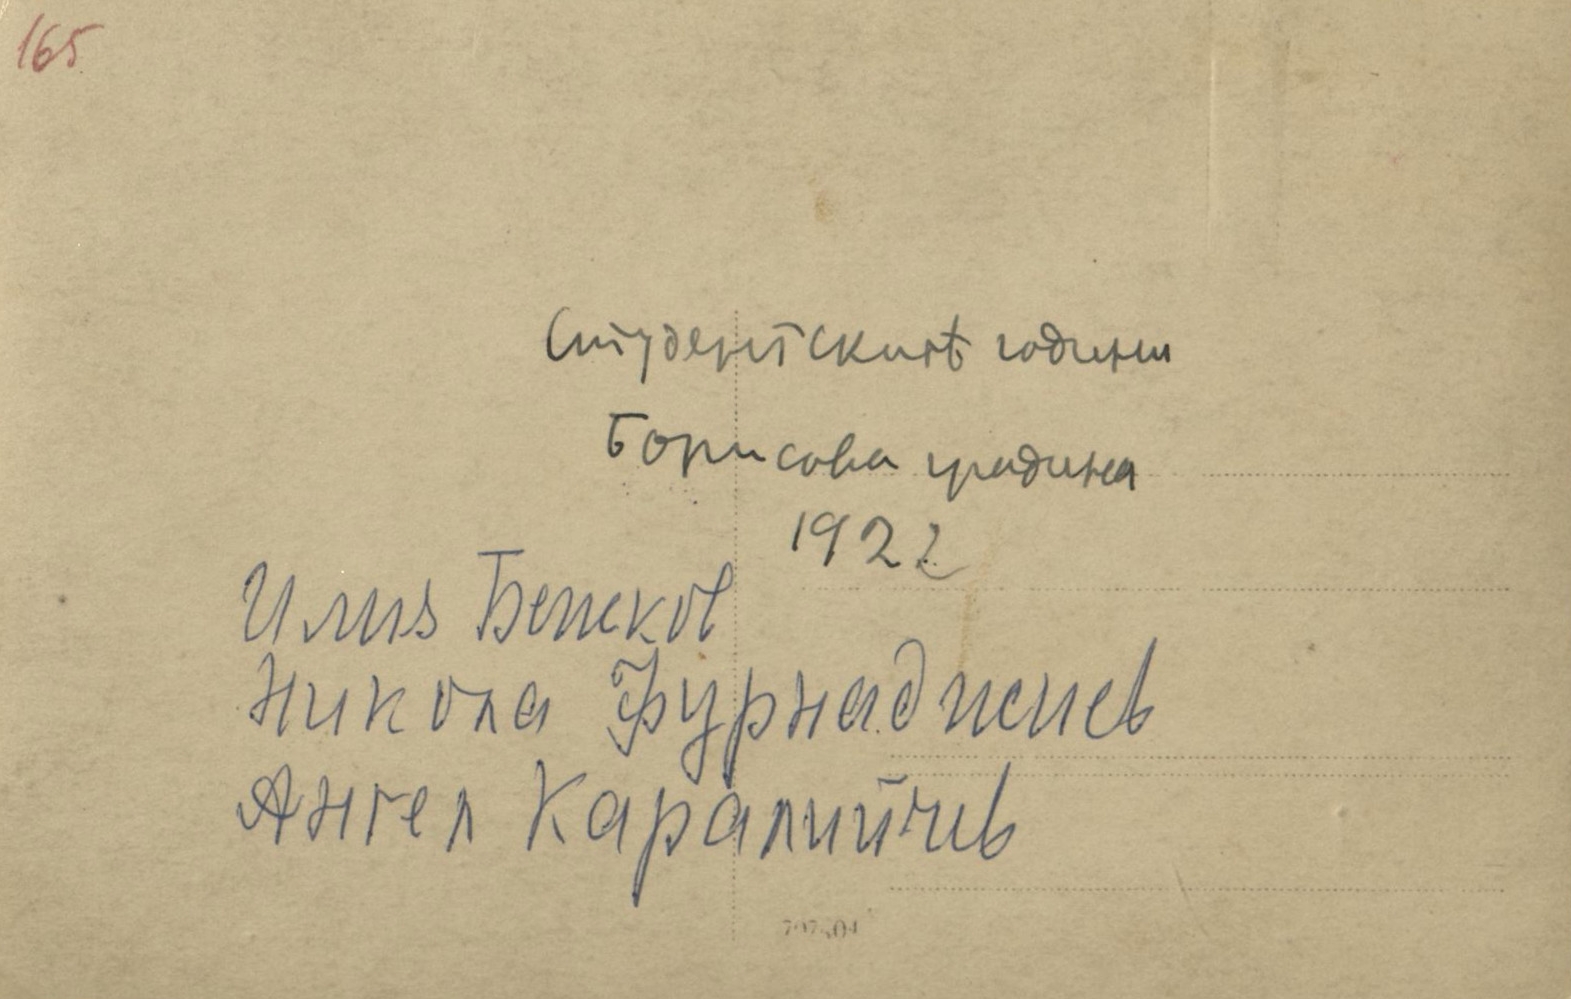 165
Студентскитѣ години
Борисова градина
1922
Илия Бешков
Никола Фурнаджиев
Ангел Каралийчев